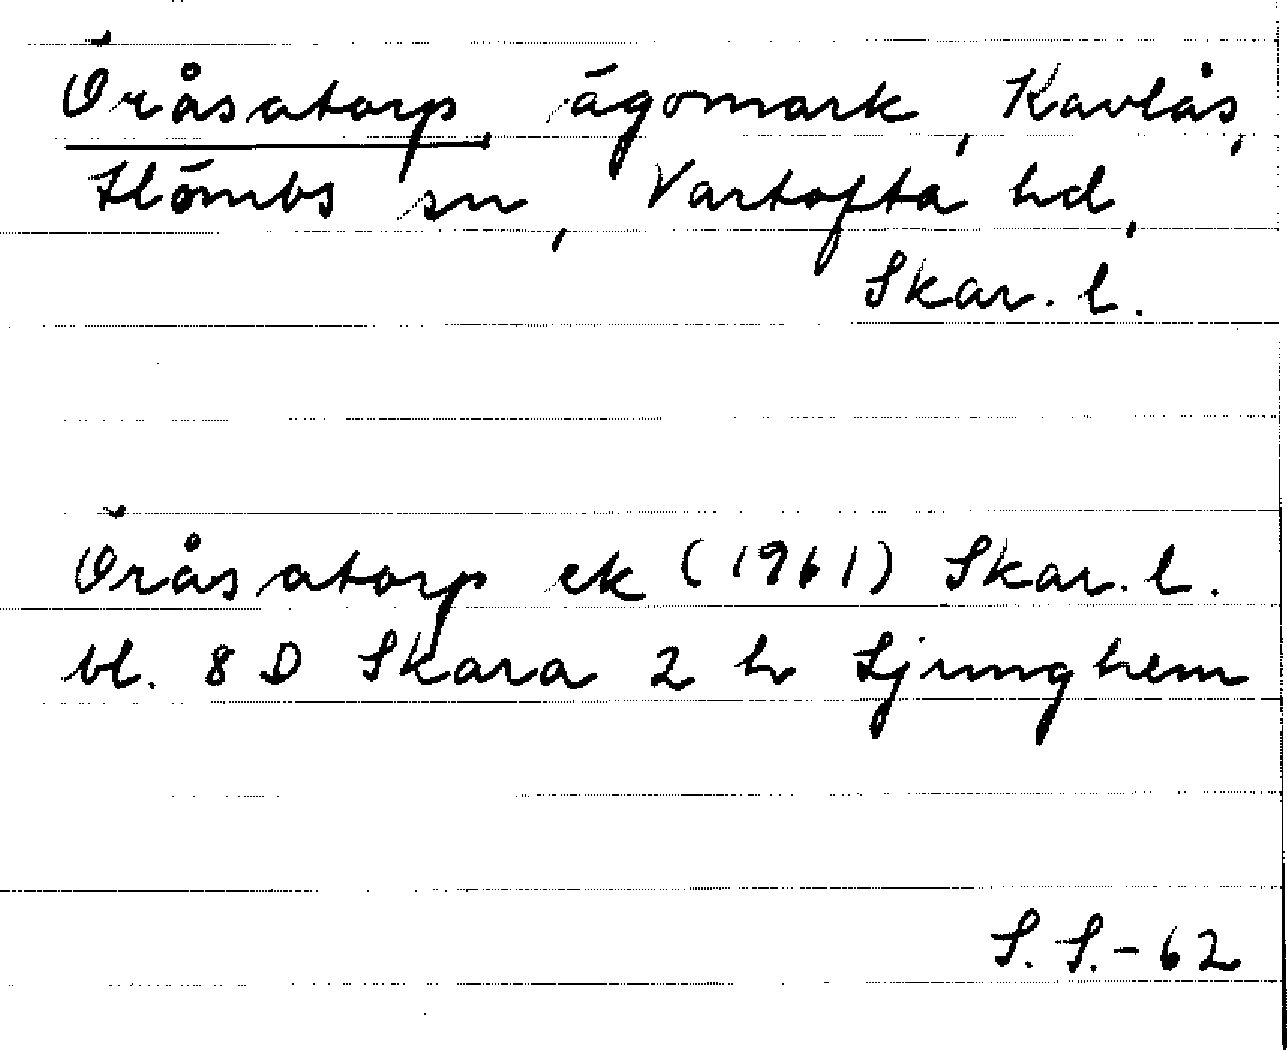 Öråsatorp, ägomark, Kavlås,
Hömbs sn, Vartofta hd,
Skar. l.
Öråsatorp ek (1961) Skar. l.
bl. 8 D Skara 2 h Ljunghem
S. S. - 62